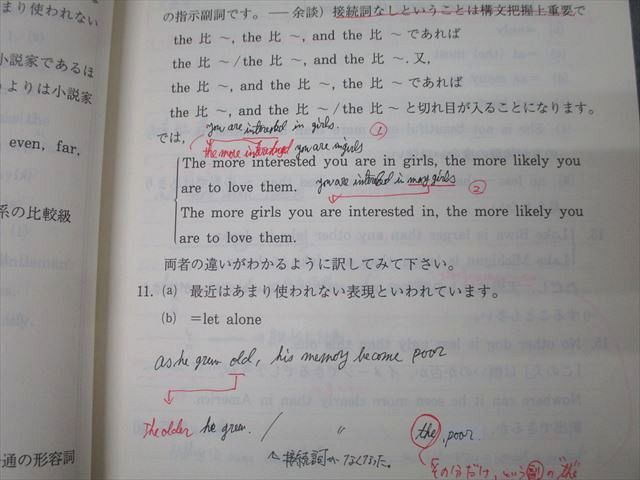 まり使われない
の指示副詞です。― 余談）接続詞なしということは構文把握上重要で
the 比 〜, the 比 〜, and the 比 〜 であれば
小説家であるほ
the 比 〜 / the 比 〜, and the 比 〜. 又,
よりは小説家
the 比 〜, and the 比 〜, the 比 〜 であれば
the 比 〜, and the 比 〜 / the 比 〜 と切れ目が入ることになります。
では,
you are interested in girls. ①
the more interested you are in girls
even, far,
The more interested you are in girls, the more likely you
are to love them.
you are interested in many girls ②
系の比較級
The more girls you are interested in, the more likely you
are to love them.
両者の違いがわかるように訳してみて下さい。
11. (a) 最近はあまり使われない表現といわれています。
(b) =let alone
as he grew old, his memory become poor
The older he grew. / 〃 the poor.
通の形容詞
接続詞がなくなった。
その分だけ, という副の"the"